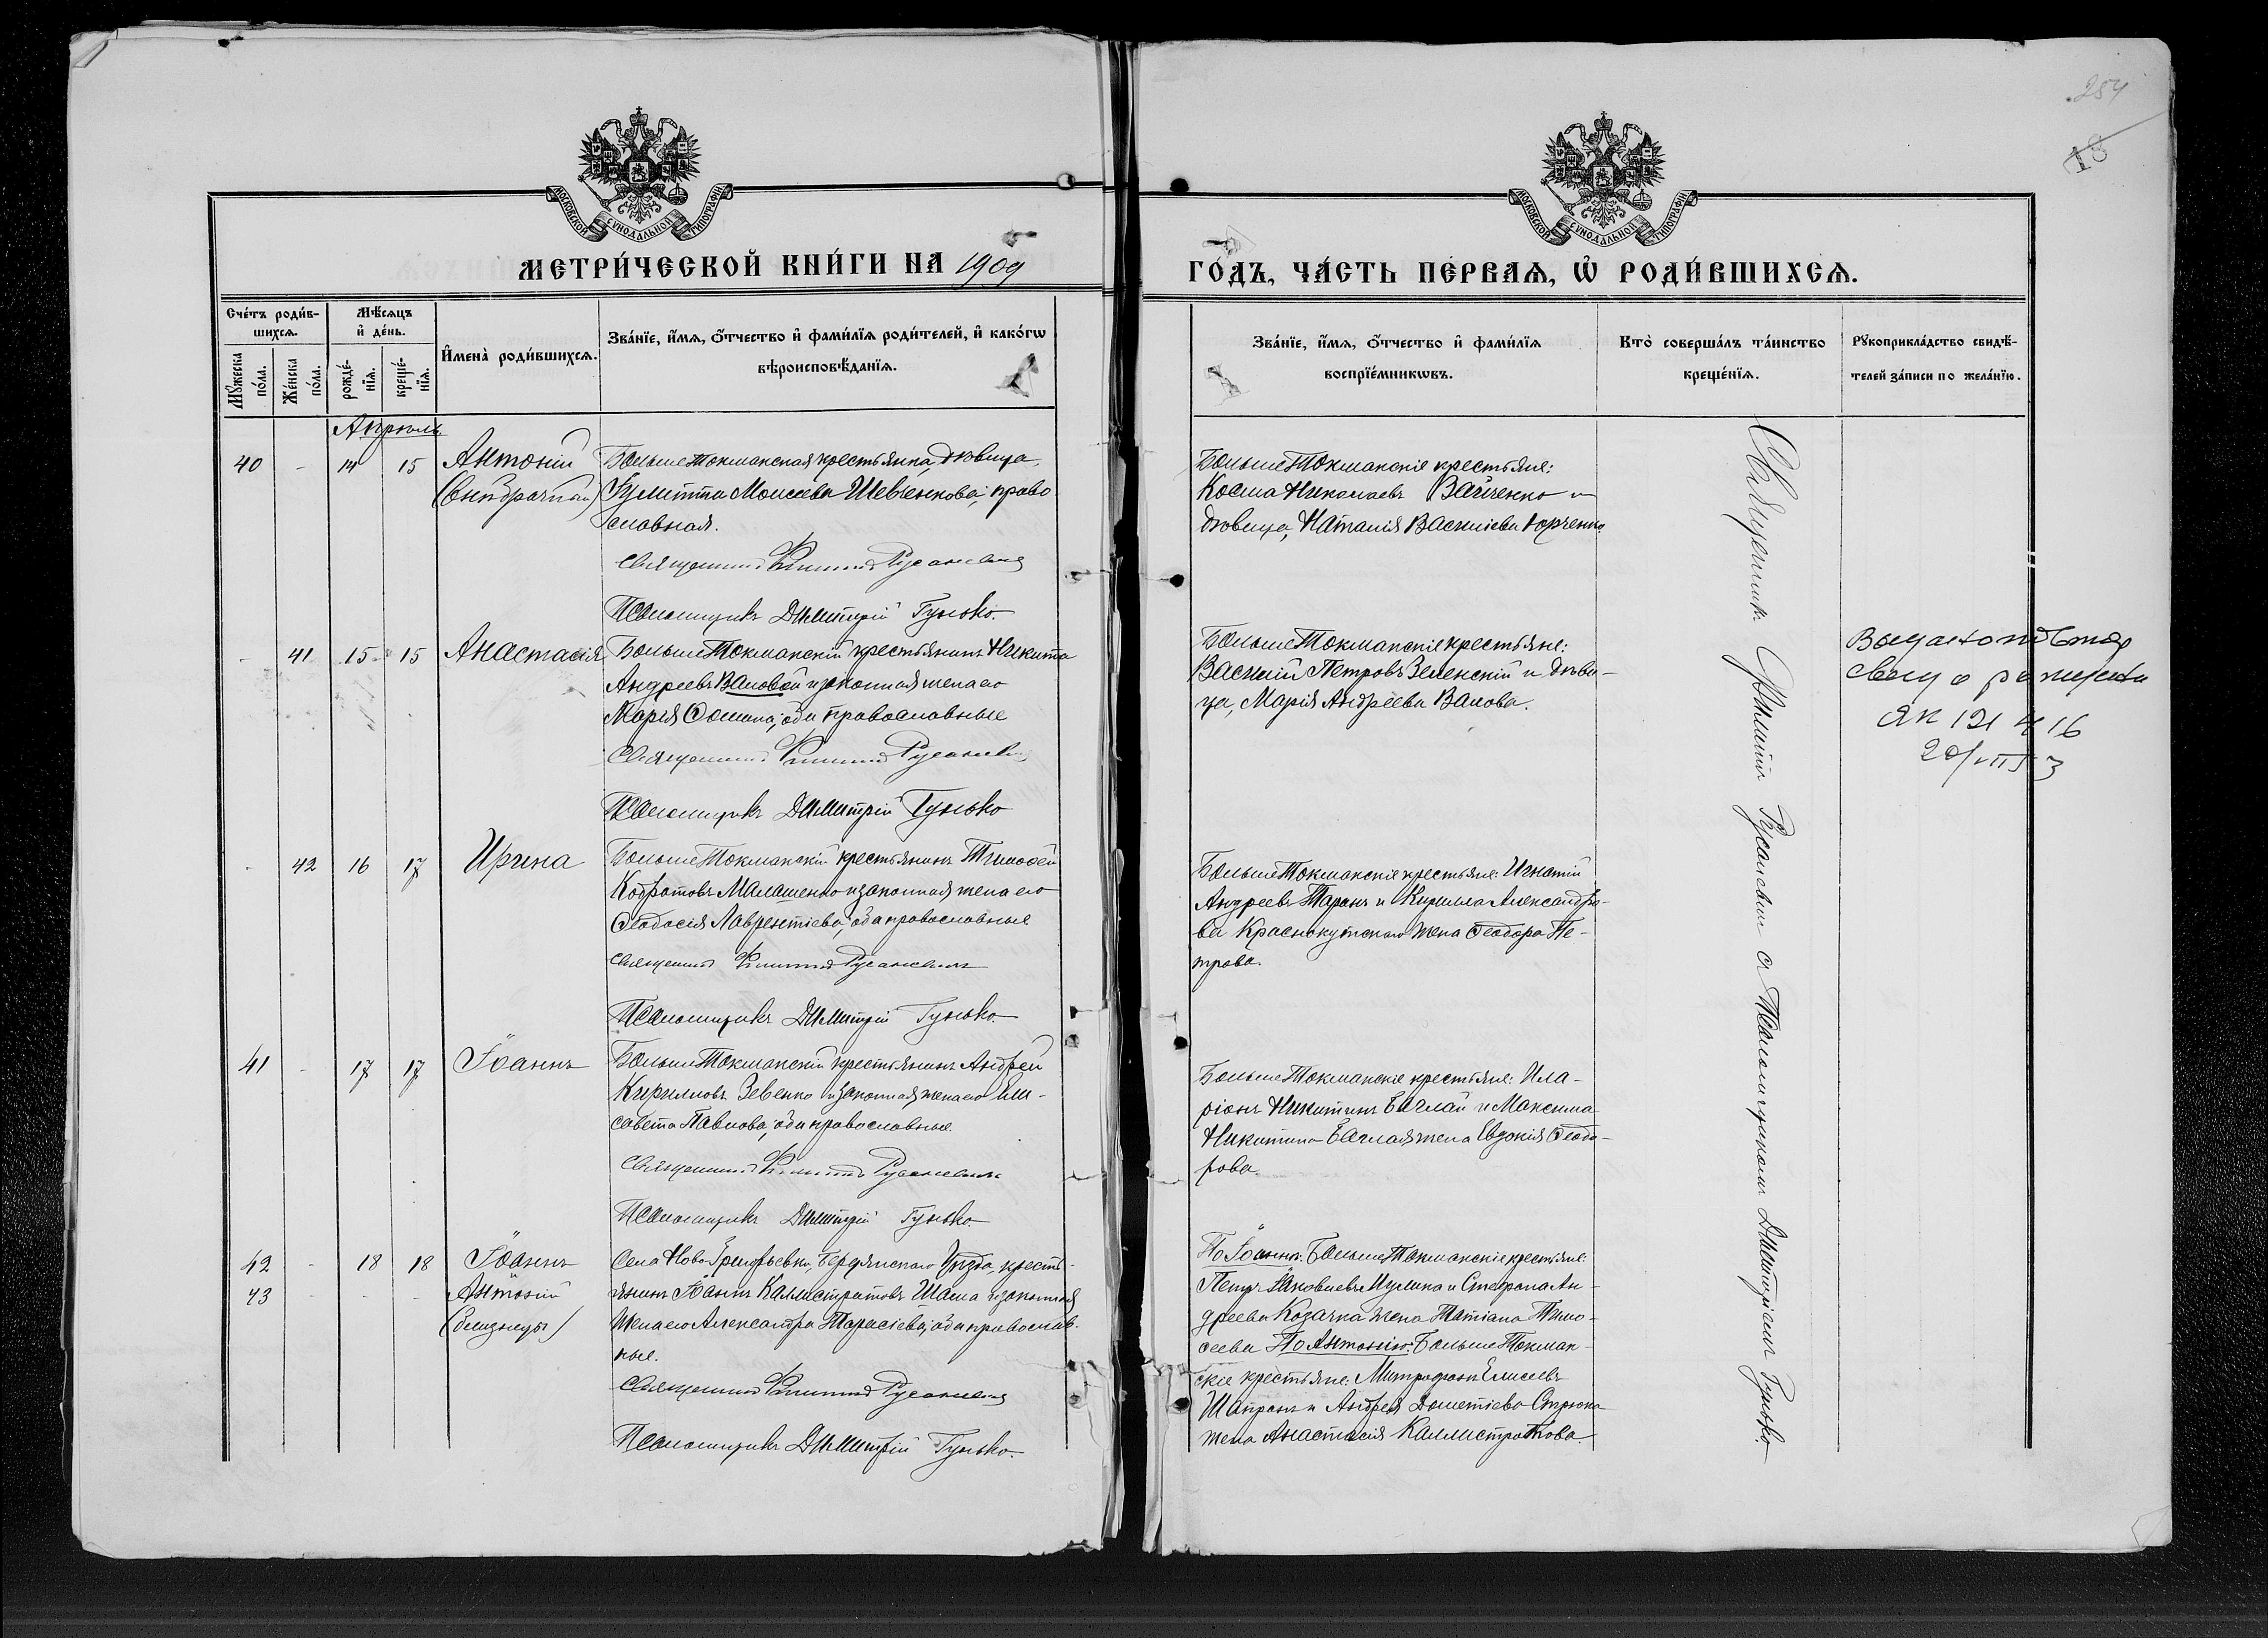 254
18
МОСКОВСКОЙ СѴНОДАЛЬНОЙ ТИПОГРАФІИ
МОСКОВСКОЙ СѴНОДАЛЬНОЙ ТИПОГРАФІИ
МЕТРИ́ЧЕСКОЙ КНИ́ГИ НА 1909
ГО́ДЪ, ЧА́СТЬ ПЕ́РВАѦ, Ѡ҆ РОДИ́ВШИХСѦ.
Сче́тъ роди́в-
шихсѧ.
Мꙋ́жеска по́ла.
Же́нска по́ла.
Мѣ́сѧцъ
и҆ де́нь.
рожде́-
нїѧ.
креще́-
нїѧ.
И҆мена̀ роди́вшихсѧ.
Зва́нїе, и҆́мѧ, ѻ҆́тчество и҆ фами́лїѧ роди́телей, и҆ како́гѡ
вѣроисповѣ́данїѧ.
Зва́нїе, и҆́мѧ, ѻ҆́тчество и҆ фами́лїѧ
воспрїе́мникѡвъ.
Кто̀ соверша́лъ та́инство
креще́нїѧ.
Рꙋкоприкла́дство свидѣ́-
телей за́писи по жела́нїю.
Апрѣль
40 - 14 15 Антоній
(внѣбрачный)
БольшеТокмакская крестьянка, дѣвица,
Іулитта Моисеева Шевченкова; право
славная.
Священникъ Русаневичъ
Псаломщикъ Димитрій Гунько.
БольшеТокмакскіе крестьяне:
Косма Николаевъ Вайченко и
дѣвица, Наталія Васильева Юрченко
- 41 15 15 Анастасія
БольшеТокмакскій крестьянинъ Никита
Андреевъ Валовой и законная жена его
Марія Ѳомина; оба православные
Священникъ Русаневичъ
Псаломщикъ Димитрій Гунько
БольшеТокмакскіе крестьяне:
Василій Петровъ Зеленскій и дѣви-
ца, Марія Андреева Валова.
Выдано повтор
свид о рожден
ЯК 121 416
- 42 16 17 Ирина
БольшеТокмакскій крестьянинъ Тимоѳей
Кодратовъ Малашенко и законная жена его
Ѳеодосія Лаврентіева; оба православные
Священникъ Русаневичъ
Псаломщикъ Димитрій Гунько
БольшеТокмакскіе крестьяне: Игнатій
Андреевъ Таранъ и Кирилла Александро-
ва Краснокутскаго жена Ѳеодора Пе-
трова.
41 - 17 17 Іоаннъ
БольшеТокмакскій крестьянинъ Андрей
Кирилловъ Зевенко и законная жена его Ели-
савета Павлова; оба православные
Священникъ Русаневичъ
Псаломщикъ Димитрій Гунько.
БольшеТокмакскіе крестьяне: Ила-
ріонъ Никитинъ Баглай и Максима
Никитина Баглая жена Евдокія Ѳеодо-
рова.
42 - 18 18 Іоаннъ
43 - - - Антоній
(близнецы)
Села Ново-Григорьевки, Бердянскаго уѣзда, кресть-
янинъ Іоаннъ Каллистратовъ Шама и законная
жена его Александра Тарасіева; оба православ-
ные.
Священникъ Русаневичъ
Псаломщикъ Димитрій Гунько.
По Іоанну: БольшеТокмакскіе крестьяне:
Петръ Яковлевъ Мулика и Стефана Ан-
дреева Козачка жена Татіана Тимо-
ѳеева По Антонію: БольшеТокмак-
скіе крестьяне: Митрофанъ Елисеевъ
Шапранъ и Андрея Дометіева Стрюка
жена Анастасія Каллистратова.
Священникъ Русаневичъ съ Псаломщикомъ Димитріемъ Гунько.